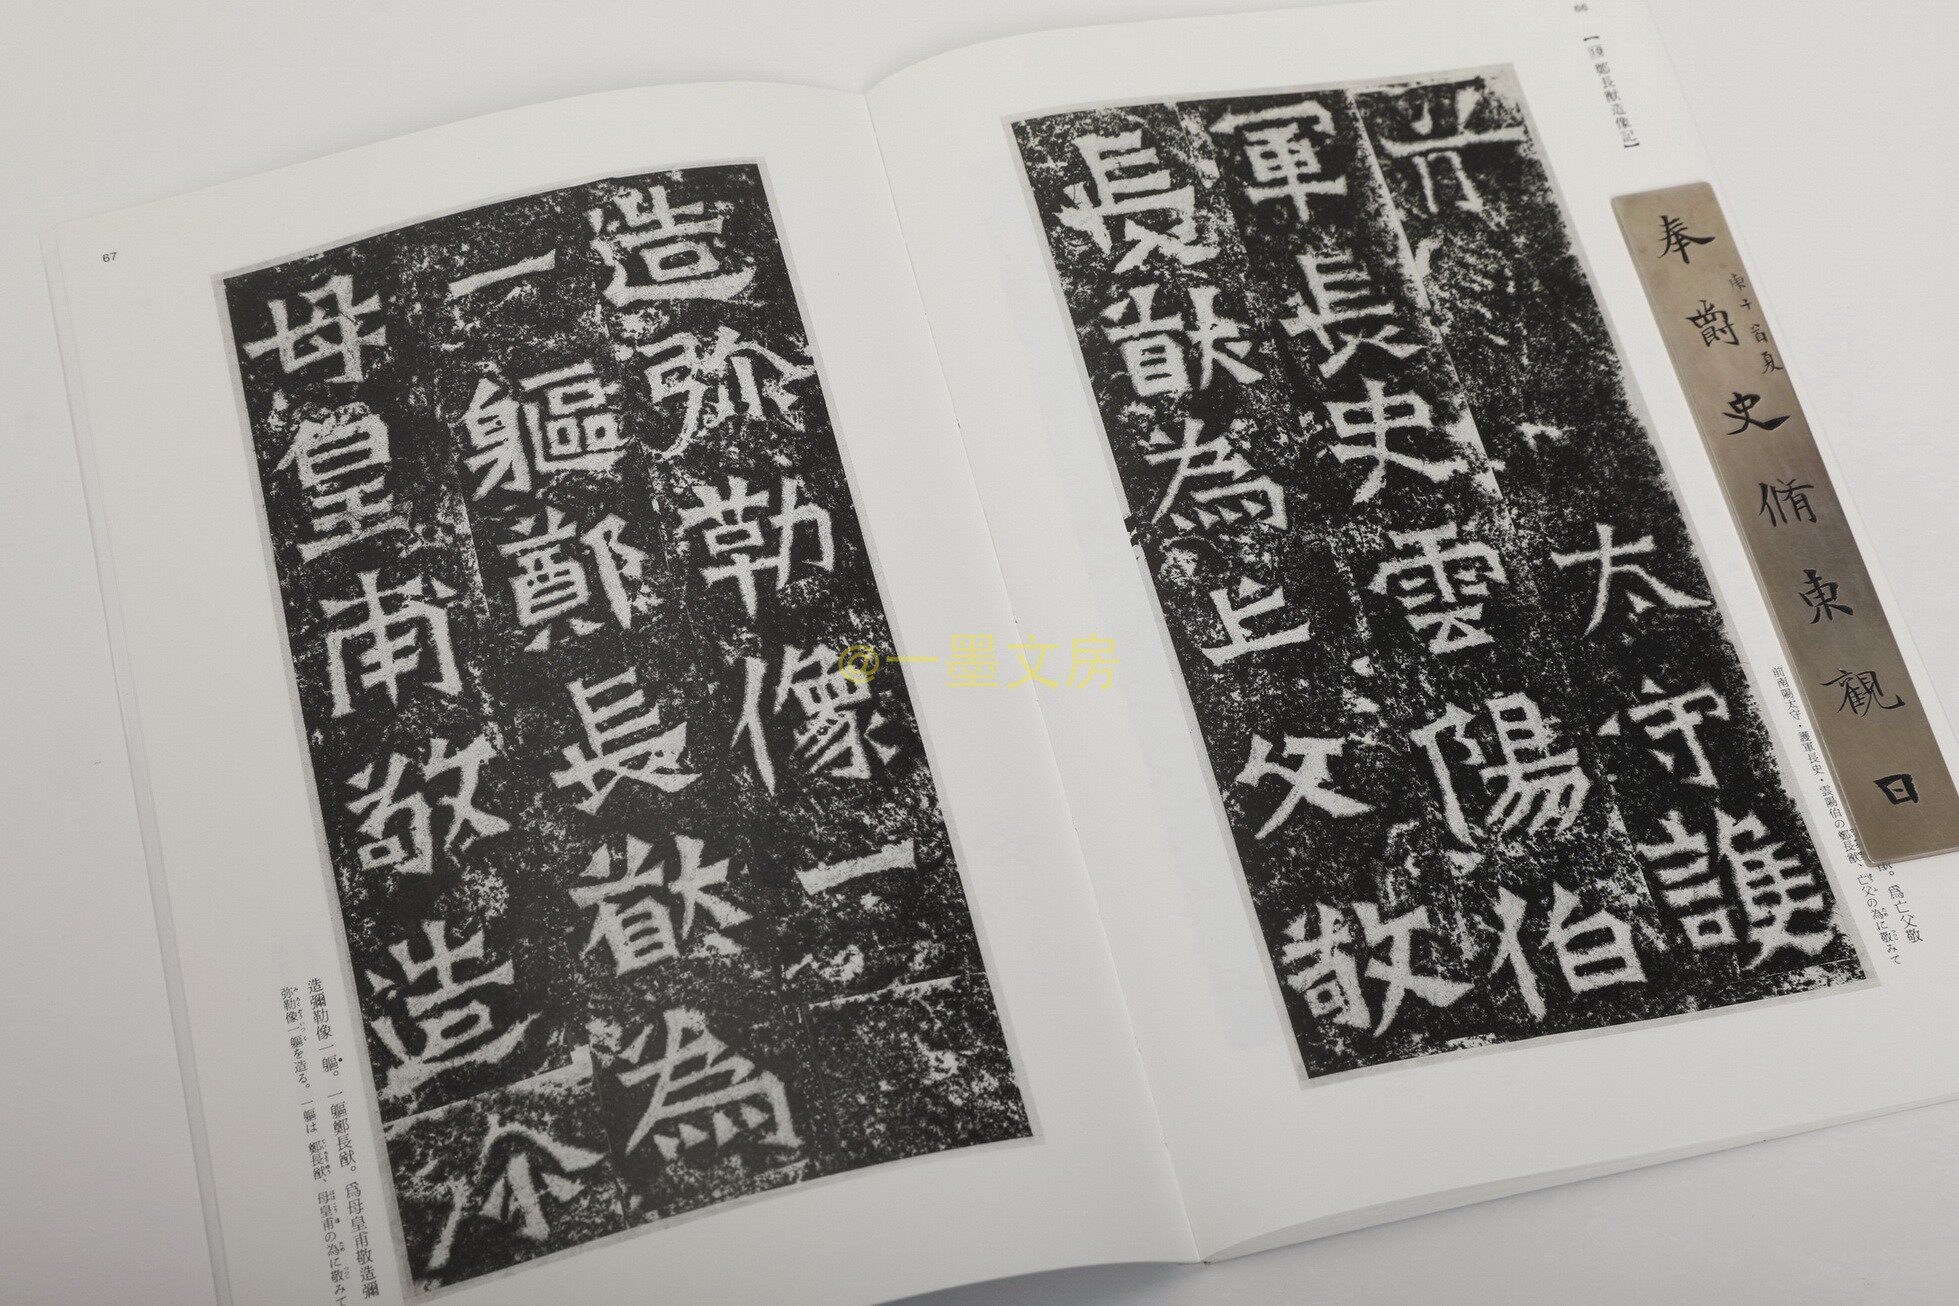 66
【⑲鄭長猷造像記】
前
太守護
軍長史雲陽伯
長猷為上父敬
前南陽太守・護軍長史・雲陽伯の鄭長猷、亡父の為に敬みて
猷。爲亡父敬
奉爵史脩東觀日
庚子首夏
67
造弥勒像一
一軀鄭長猷為
母皇甫敬造弥
造彌勒像一軀。一軀鄭長猷。爲母皇甫敬造彌
弥勒像一軀を造る。一軀は鄭長猷、母皇甫の為に敬みて
@一墨文房